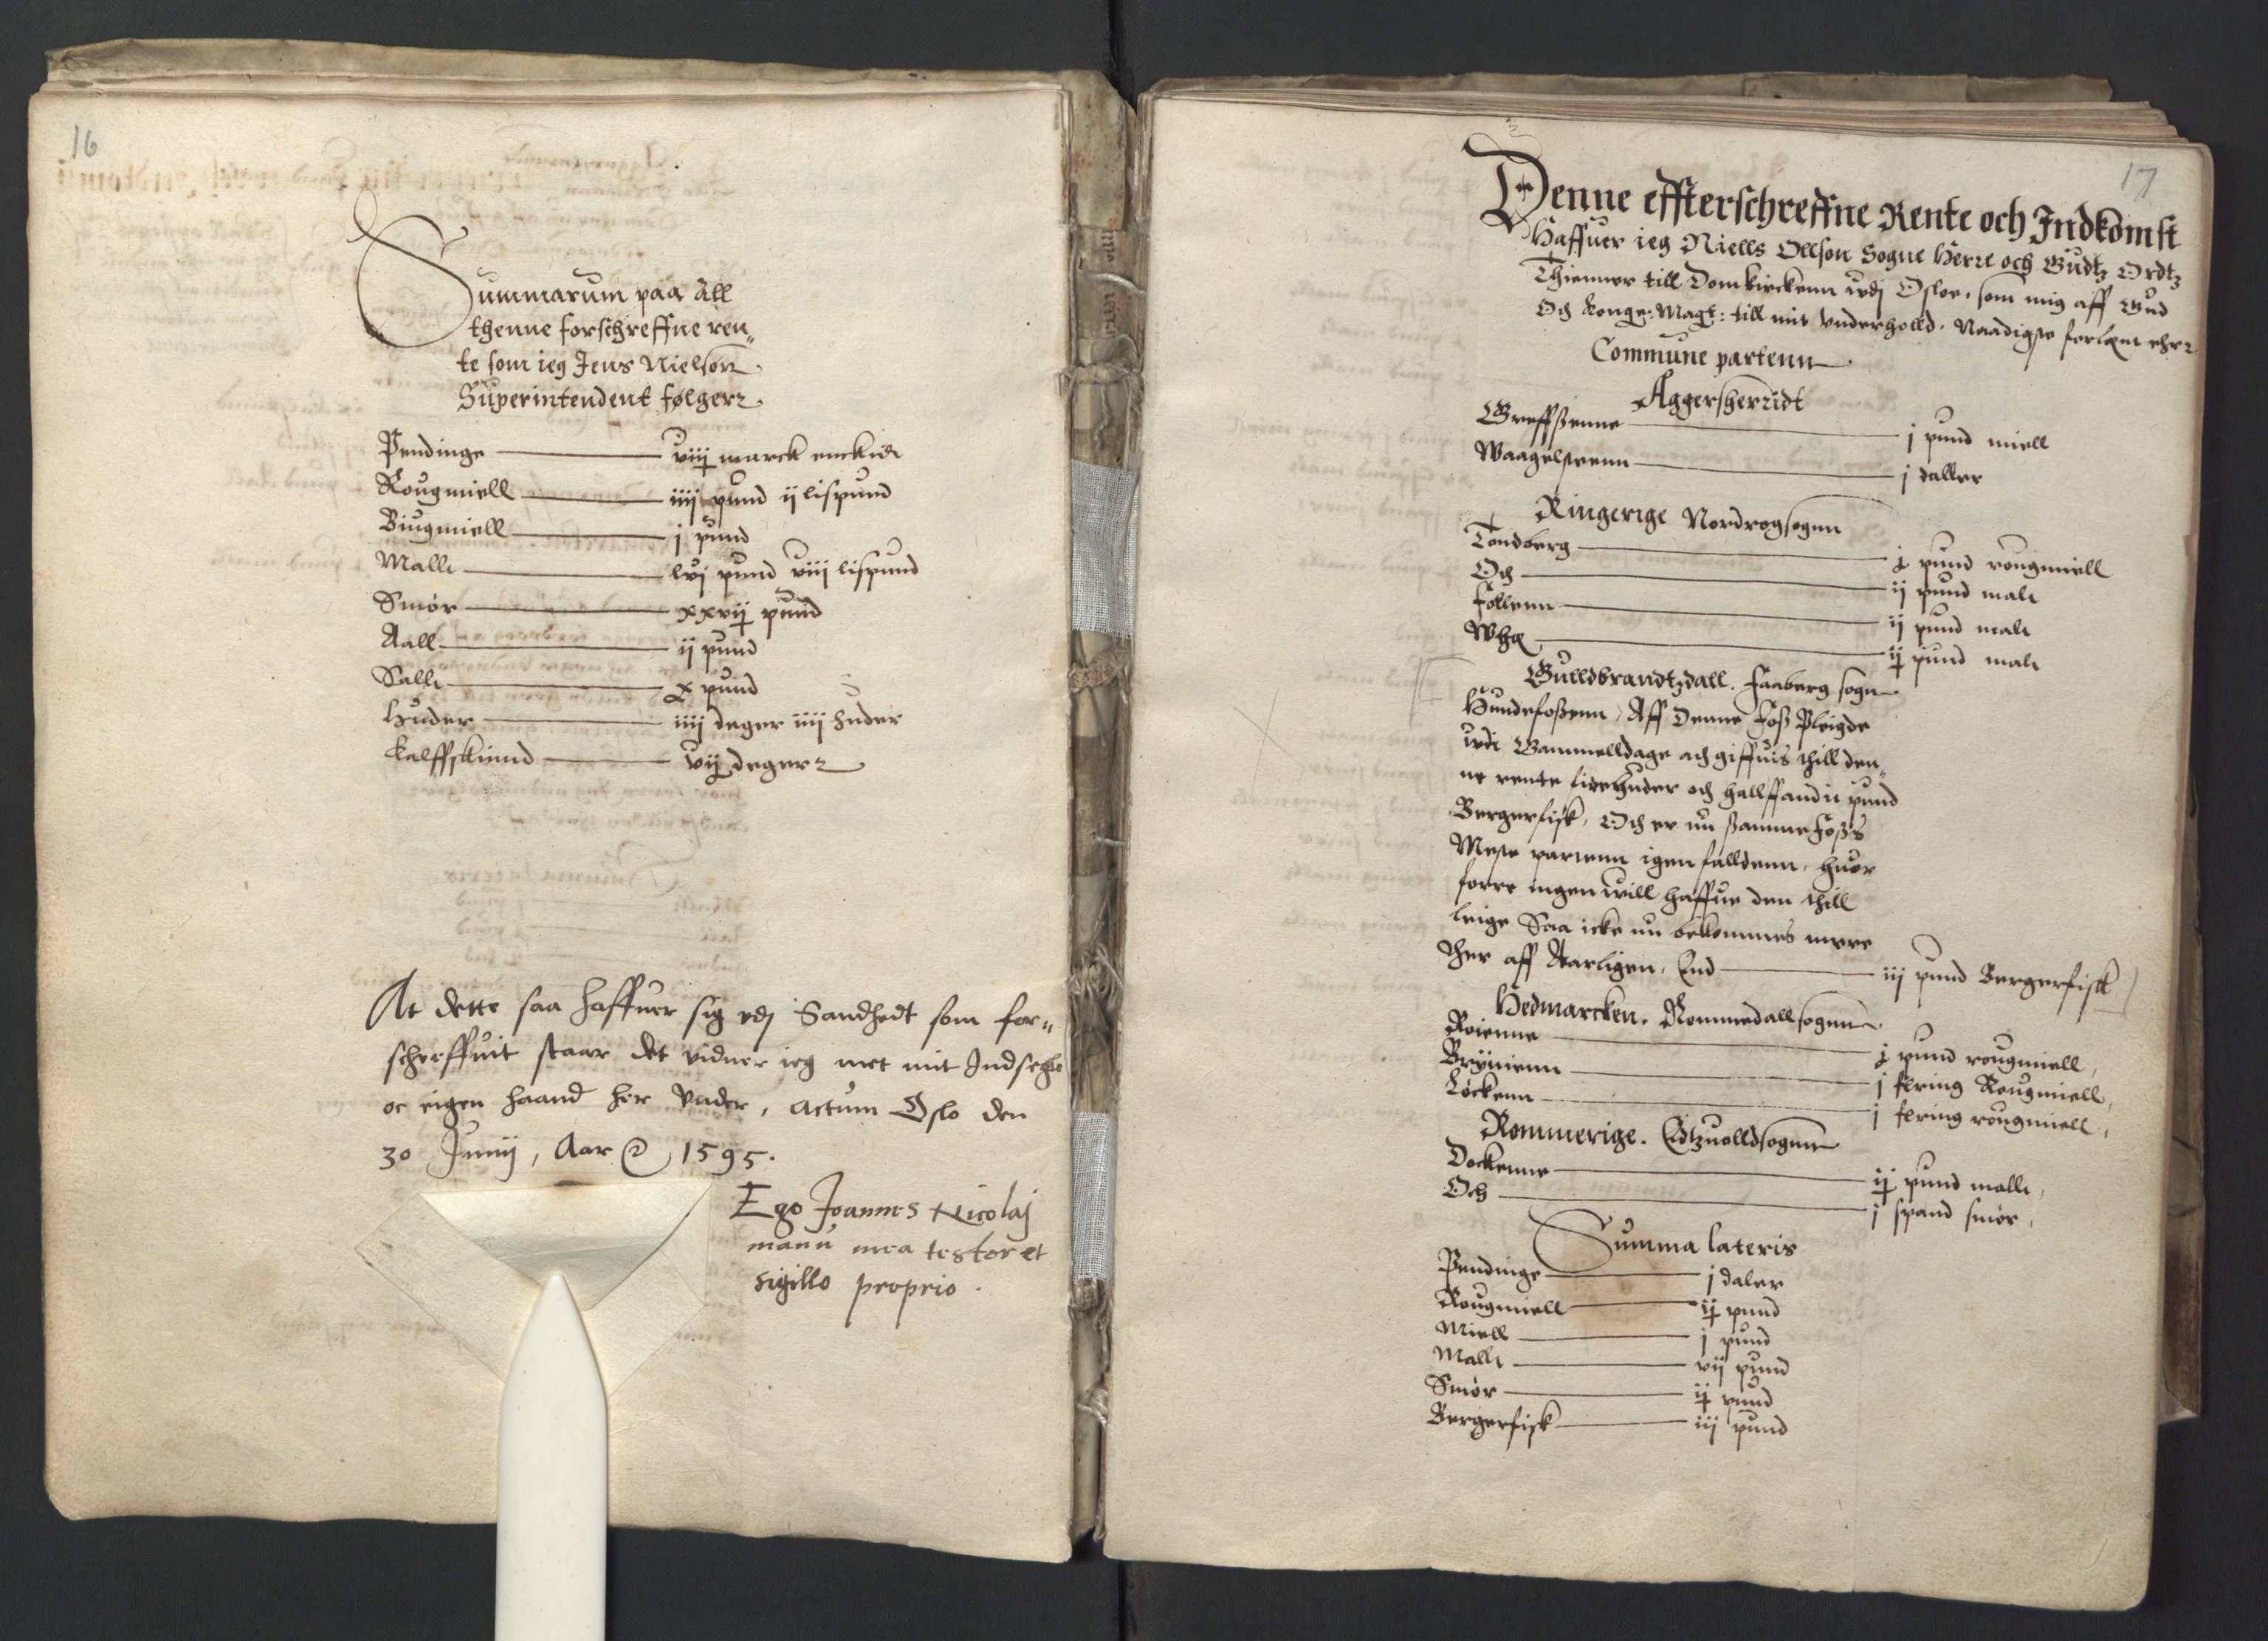 16
Summarum paa All
thenne forschreffne ren„
te som ieg Jens Nielsøn
Superintendent følgerr.
Pendinge — viij marck enckidt
Rougmiell — iiij pund ij lispund
Biugmiell — j pund
Mallt — lvj pund viij lispund
Smör — xxvij pund
Aall — ij pund
Sallt — x pund
Huder — iiij deger iiij huder
Kalffskiind — vij degerr
At dette saa haffuer sig vdj Sandhedt som for„
schreffuit staar det vidner ieg met mit Indsegle
oc eigen haand her vnder, Actum Oslo den
30 Junij, Aar @ 1595.
Ego Joannes Nicolaj
manu mea testor et
sigillo proprio.
17
Denne effterschreffne Rente och Indkomst
Haffuer ieg Niells Ollson Sogne Herre och Gudtz Ordtz
Thienner till Domkirckenn vdj Osloe, som mig aff Gud
Och Konge: Magt: till mit vnderholld. Naadigste forlænt ehr
Commune partenn.
Aggersherridt
Greffßenne — j pund miell
Waagelsteenn — j daller
Ringerige Nordrogsognn
Tandberg — j pund rougmiell
Och — ij pund malt
Follenn — ij pund malt
Whæ — ij pund malt
Gulldbrandtzdall. Faaberg sogn
Hundefoßenn, Aff Denne Foß Pleigde
vdi Gammelldage at giffuis thill den„
ne rente live huder och hallffandit pund
Bergerfisk, Och er nu ßamme Foß's
Meste partenn igen falldenn, huor
forre ingen will haffue den thill
leige Saa icke nu bekommes mere
ther aff Aarligen. End — iij pund Bergerfisk
Hedmarcken. Rommedallsognn
Roienne — j pund rougmiell,
Brynienn — j fering Rougmiell,
Löckenn — j fering rougmiell,
Rommerige. Edtzuolldsognn
Dockenne — ij pund mallt,
Och — j spand smör,
Summa lateris
Pendinge — j daler
Rougmiell — ij pund
Miell — j pund
Mallt — vij pund
Smör — ij pund
Bergerfisk — iij pund